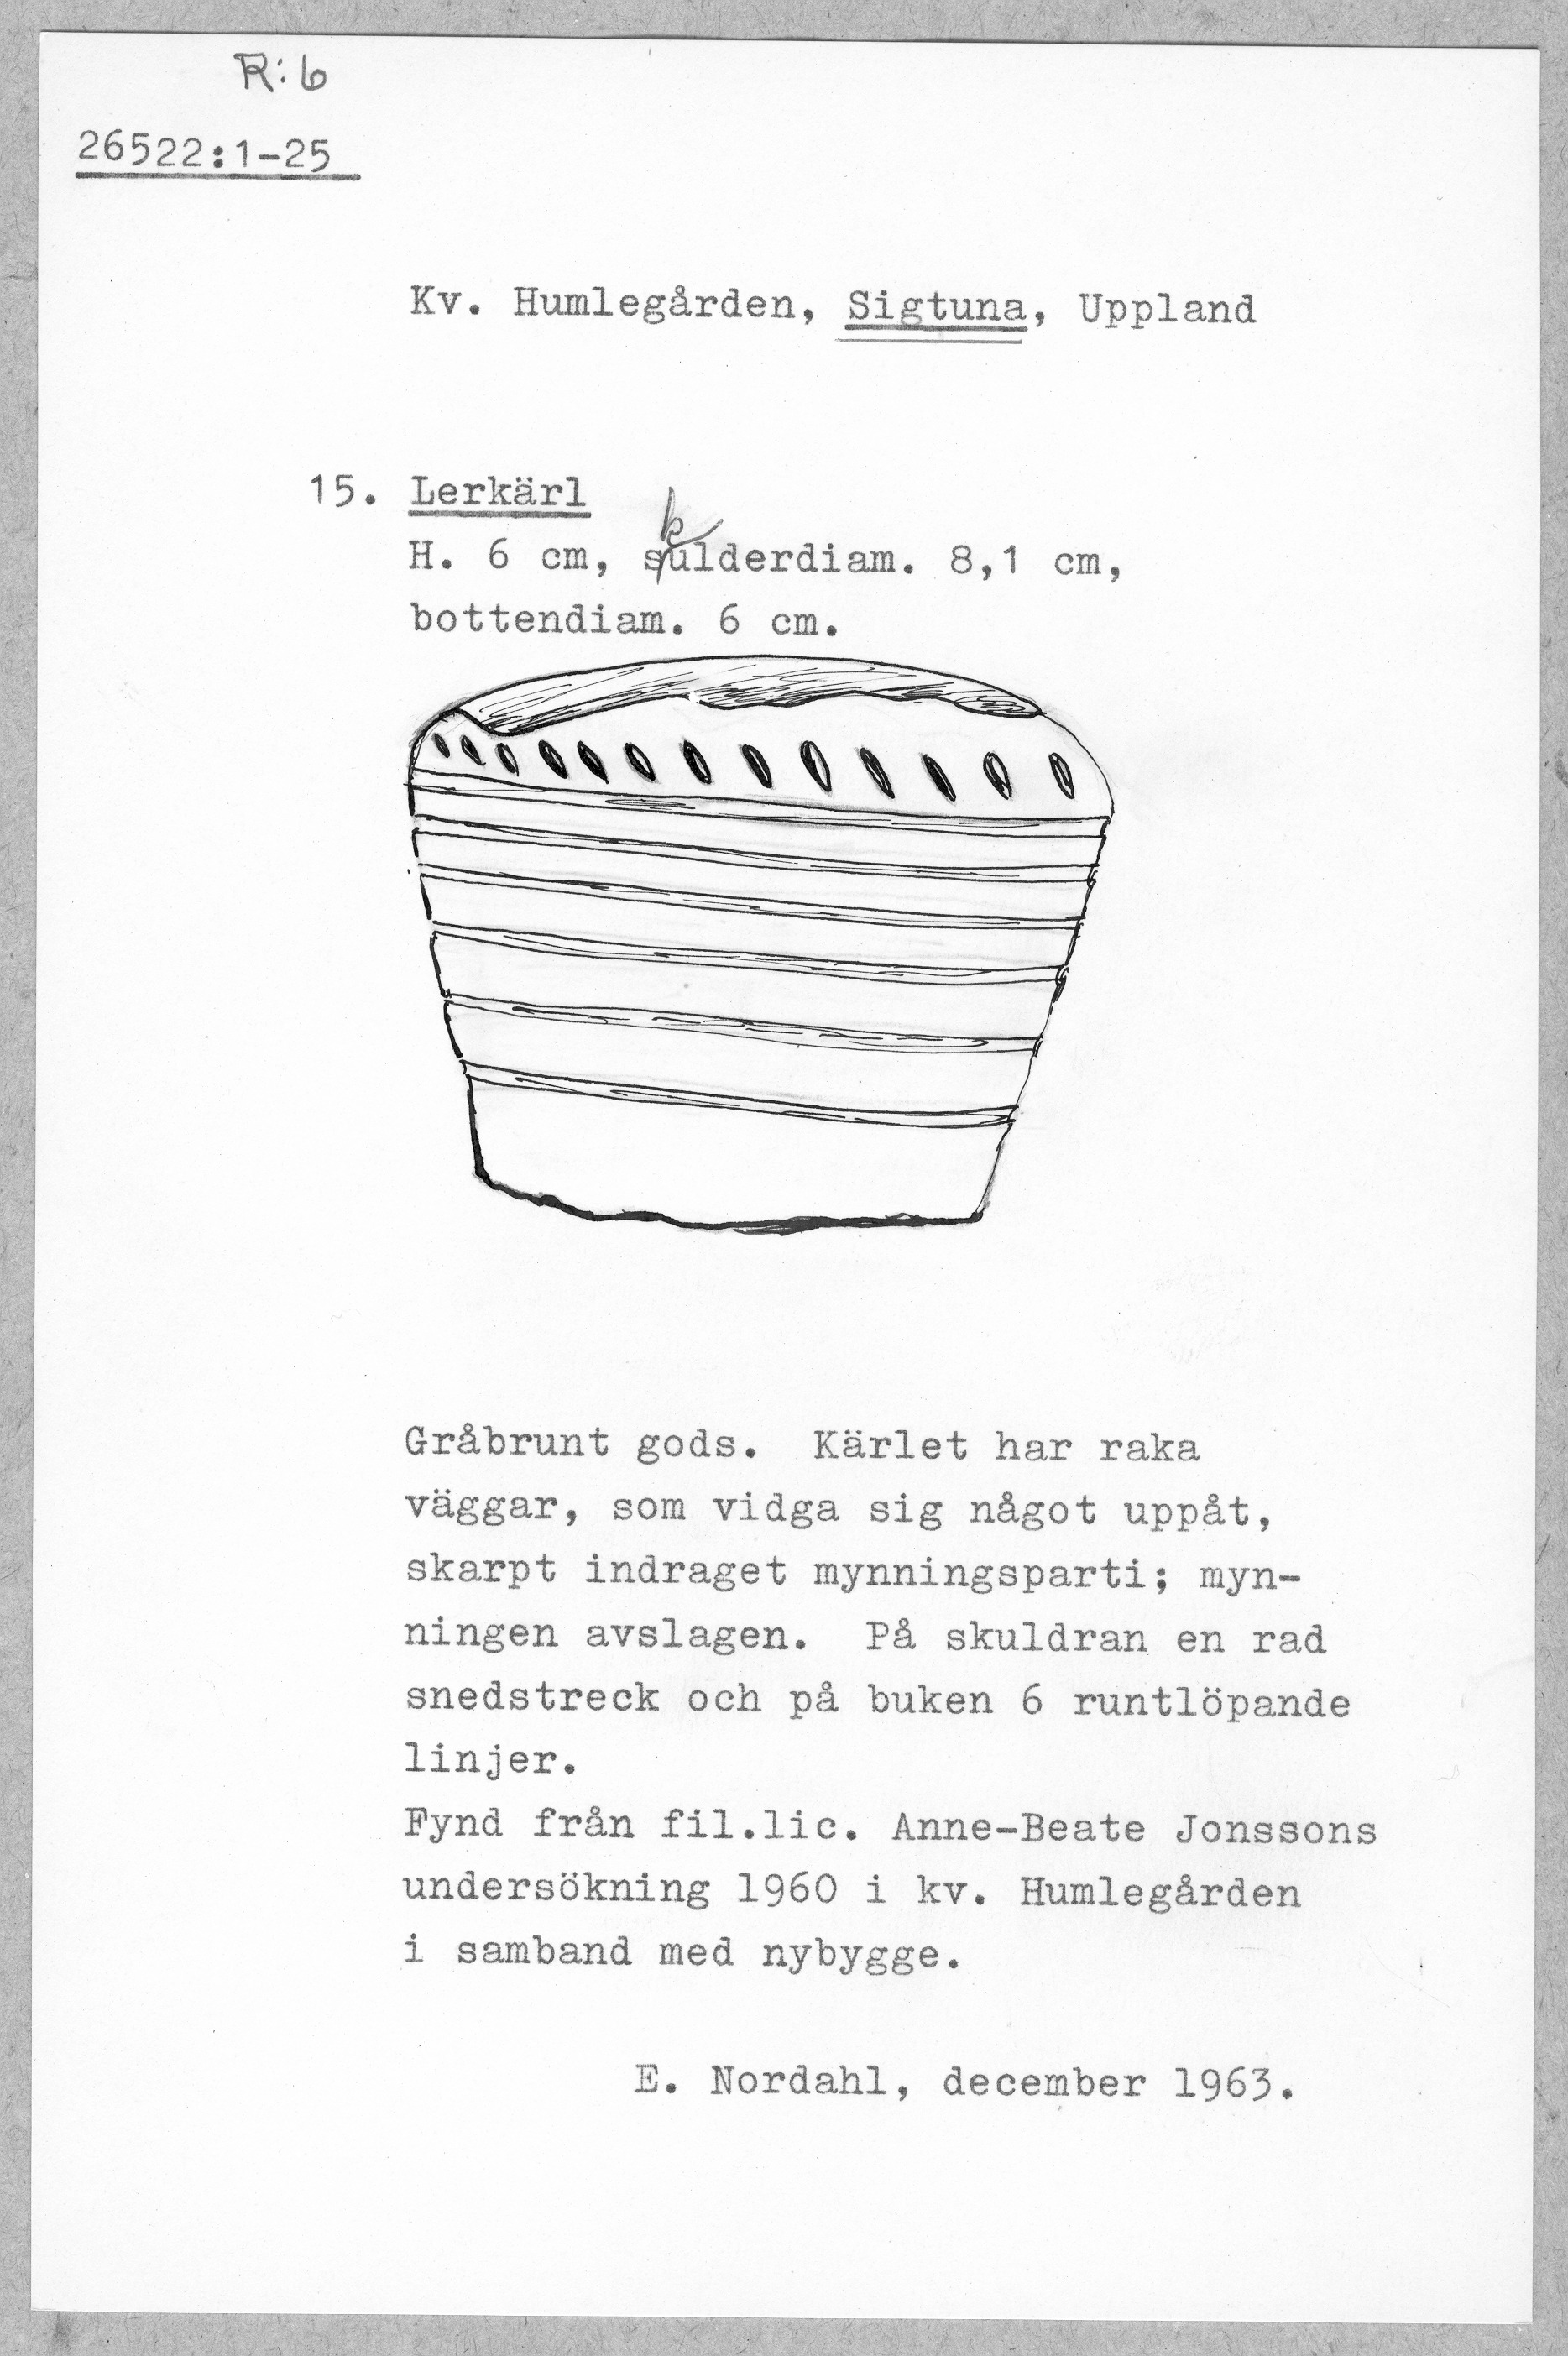 R:6
26522:1-25
Kv. Humlegården, Sigtuna, Uppland
15. Lerkärl
H. 6 cm, skulderdiam. 8,1 cm,
bottendiam. 6 cm.
Gråbrunt gods. Kärlet har raka
väggar, som vidga sig något uppåt,
skarpt indraget mynningsparti; myn-
ningen avslagen. På skuldran en rad
snedstreck och på buken 6 runtlöpande
linjer.
Fynd från fil.lic. Anne-Beate Jonssons
undersökning 1960 i kv. Humlegården
i samband med nybygge.
E. Nordahl, december 1963.